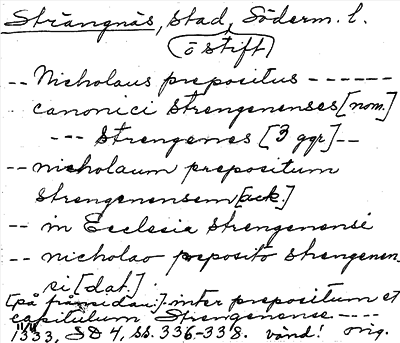 Strängnäs, stad, Söderm. l.
o stift
-- Nicholaus prepositus ------
canonici strengenenses [nom.]
--- strengenes [3 ggr] --
-- nicholaum prepositum
strengenensem [ack.]
-- in Ecclesia strengenensi
-- nicholao preposito strengenen-
si [dat.]
[på framsidan:] inter prepositum et
capitulum Strengenense ----
1333, SD 4, ss. 336-338. vänd! orig.